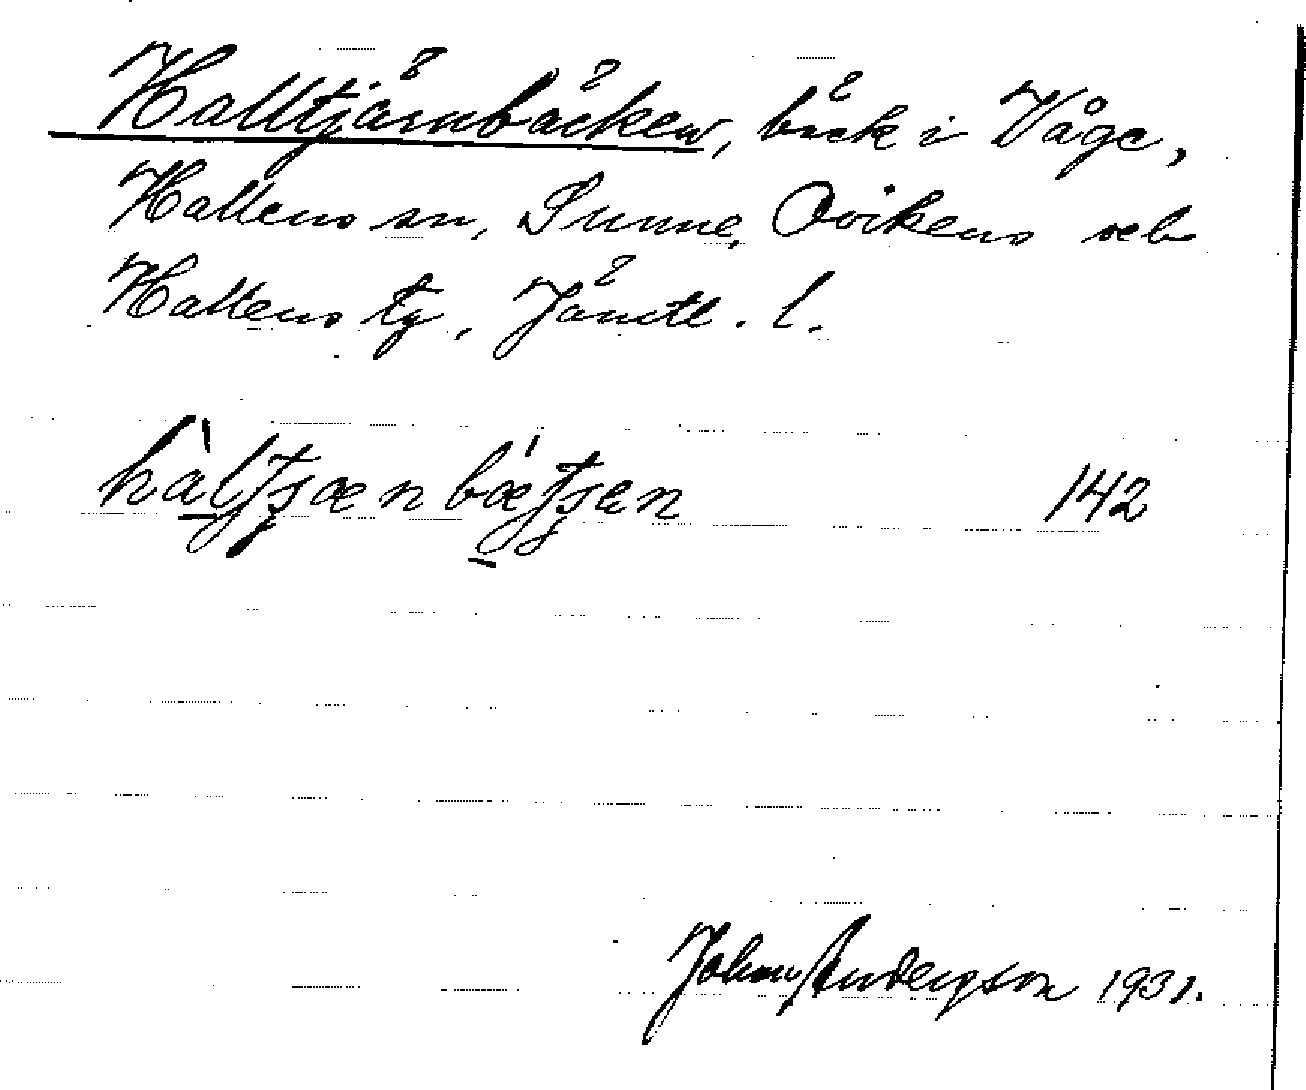 Halltjärnbäcken, bäck i Våge,
Hallens sn, Sunne, Ovikens och
Hallens tg, Jämtl. l.
142
Johan Anderson 1931.